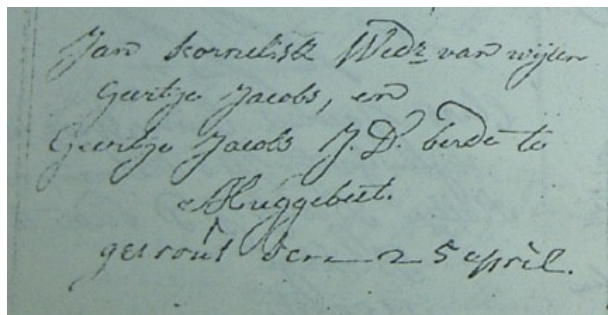 Jan Kornelisk Wedr. van wijlen
Geertje Jacobs, en
Geertje Jacobs J. D. beide te
Muggebeet.
getrout den 25 april.